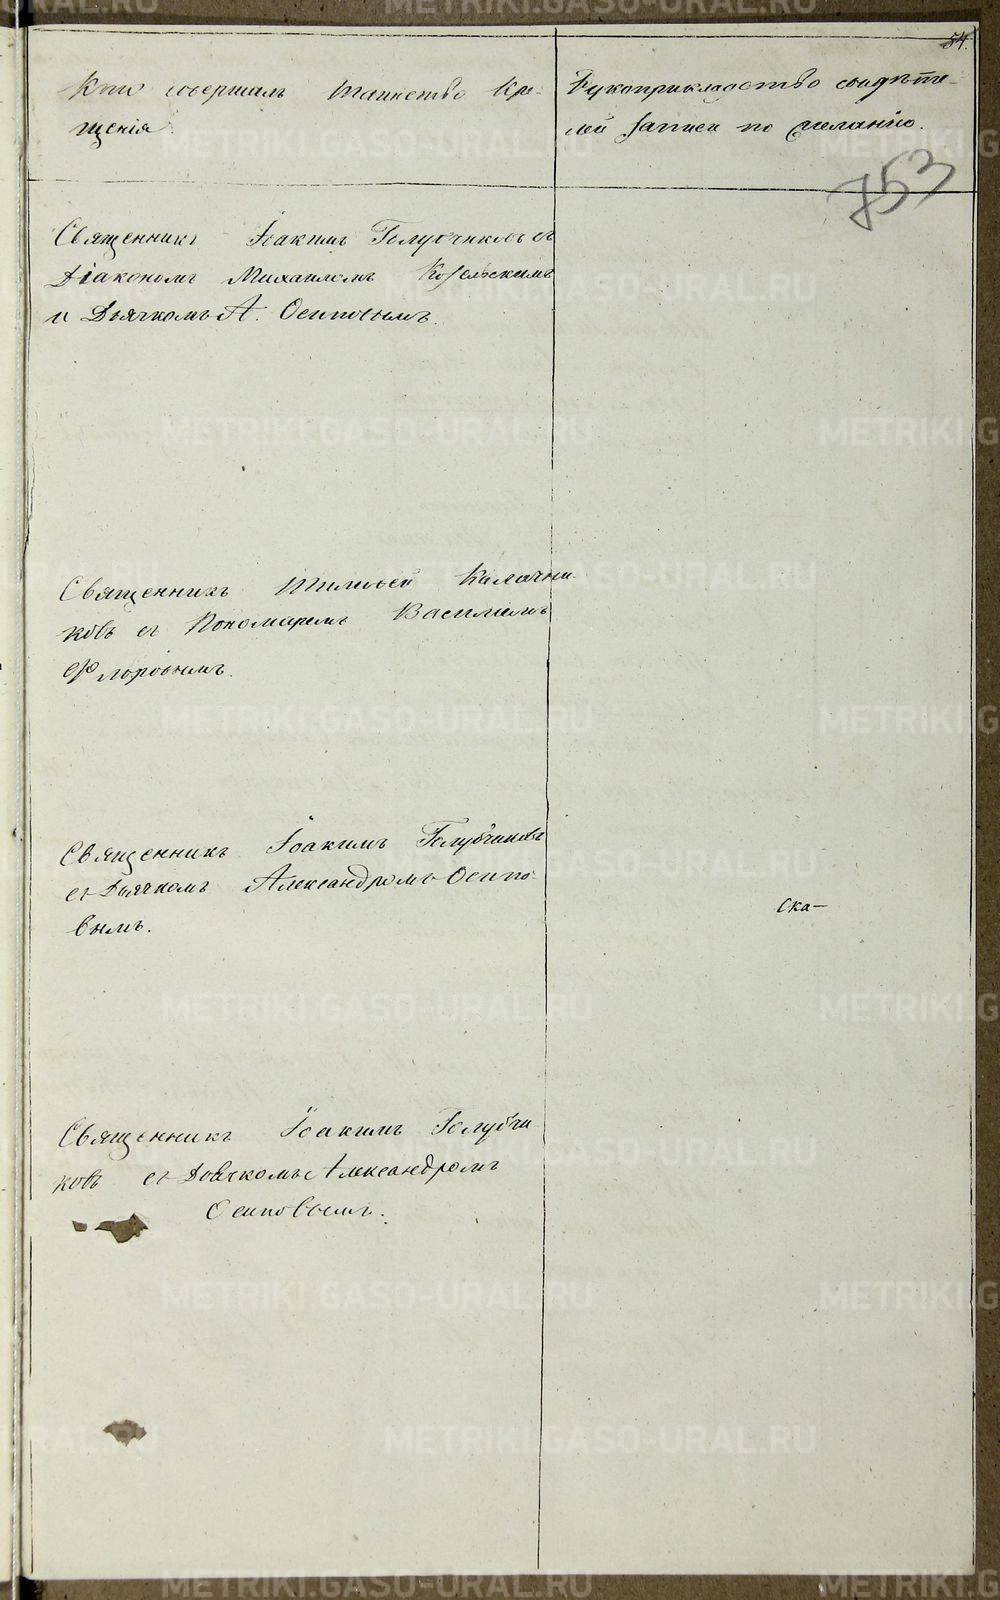 54.
Кто совершалъ таинство Кре-
щенія.
Рукоприкладство свидѣте-
лей записи по желанію.
753
Священникъ Іоакимъ Голубчиковъ съ
Діакономъ Михаиломъ Козельскимъ
и Дьячкомъ А. Осиповымъ.
Священникъ Тимофей Калачни-
ковъ съ Пономаремъ Василіемъ
Флоровымъ.
Священникъ Іоакимъ Голубчиковъ
съ Дьячкомъ Александромъ Осипо-
вымъ.
Ска-
Священникъ Іоакимъ Голубчи-
ковъ съ Дьячкомъ Александромъ
Осиповымъ.
METRIKI.GASO-URAL.RU